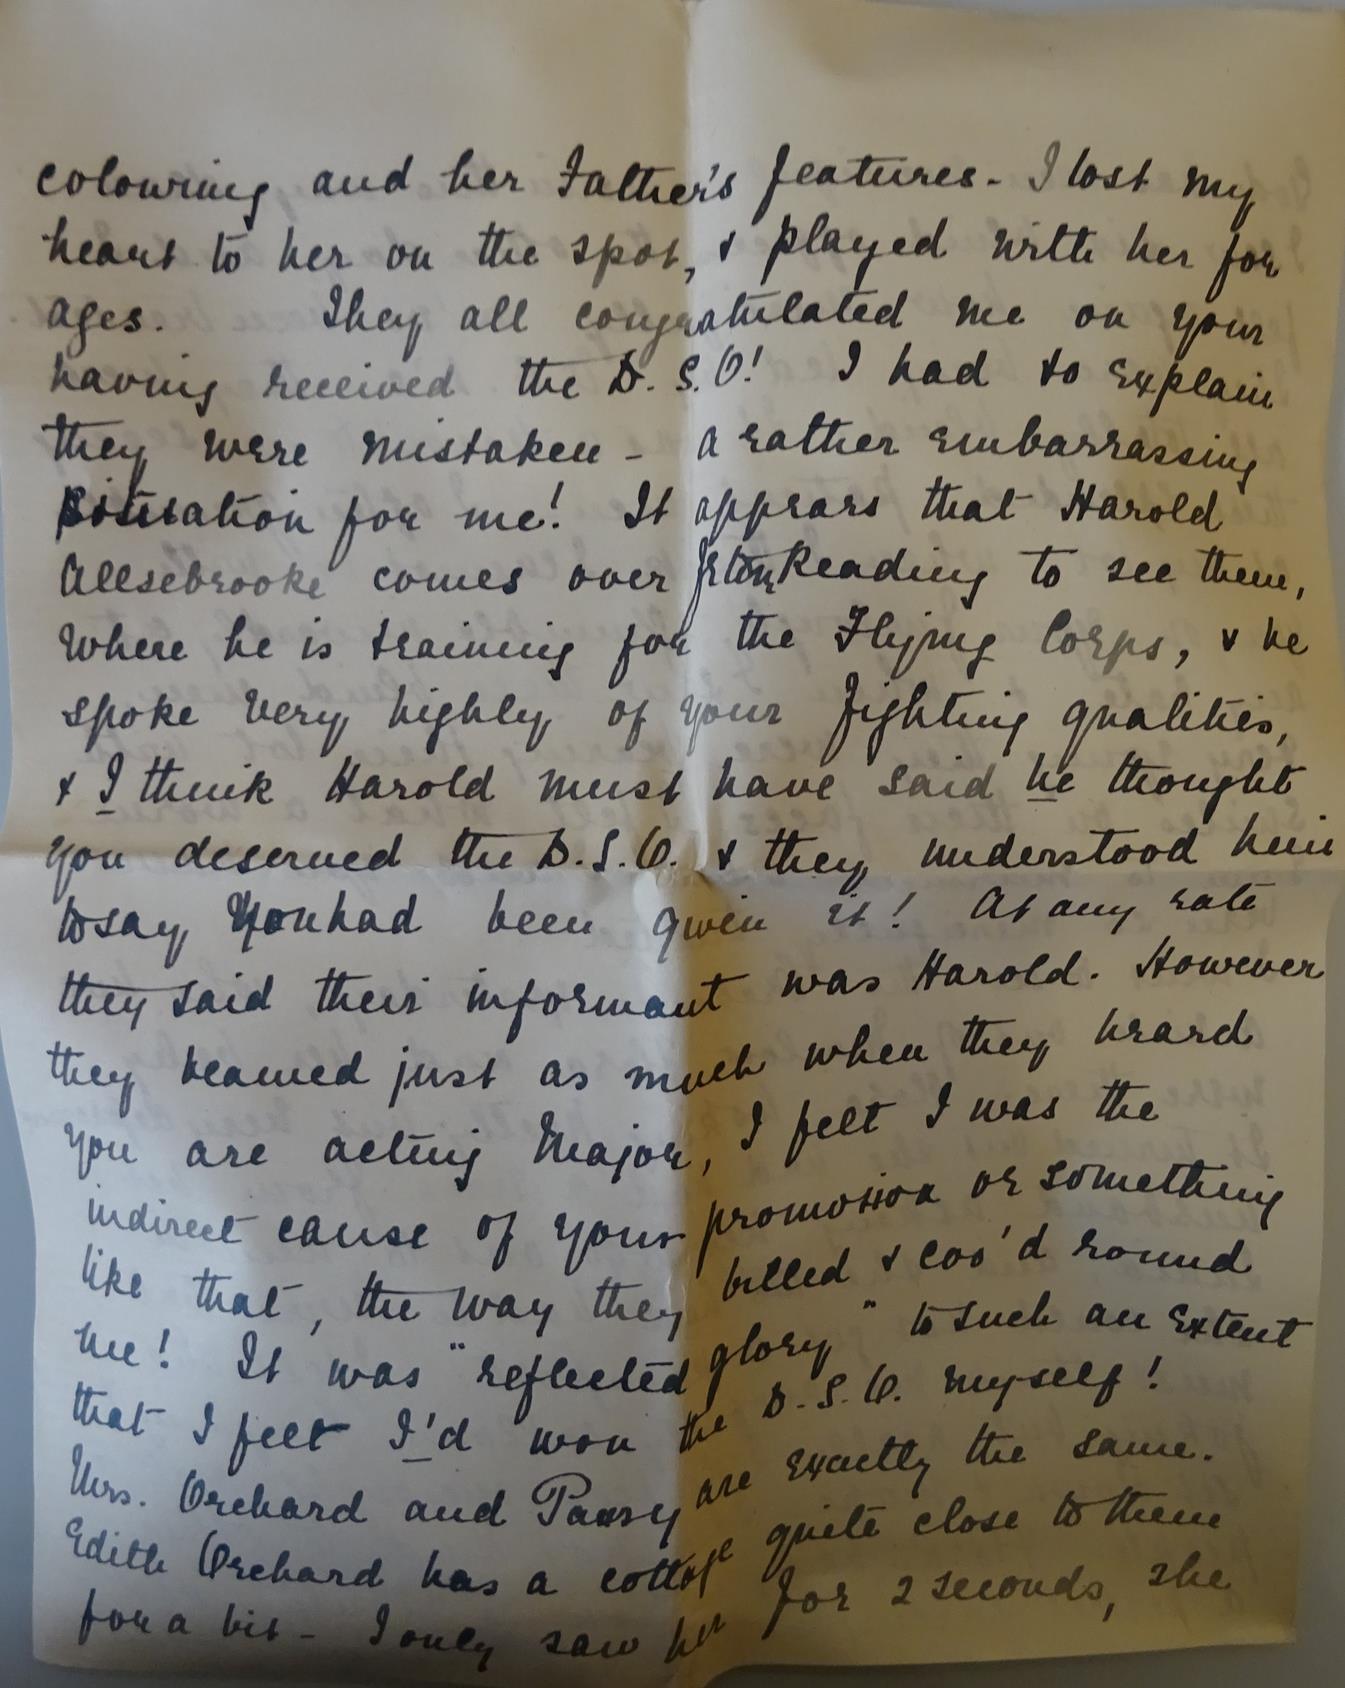 colouring and her Father's features - I lost my
heart to her on the spot, & played with her for
ages. They all congratulated me on your
having received the D.S.O! I had to explain
they were mistaken - a rather embarrassing
situation for me! It appears that Harold
Allsebrooke comes over from Reading to see them,
where he is training for the Flying Corps, & he
spoke very highly of your fighting qualities,
& I think Harold must have said he thought
you deserved the D.S.O. & they understood him
to say you had been given it! At any rate
they said their informant was Harold. However
they beamed just as much when they heard
you are acting Major, I felt I was the
indirect cause of your promotion or something
like that, the way they billed & coo'd round
me! It was "reflected glory" to such an extent
that I felt I'd won the D.S.O. myself!
Mrs. Orchard and Pansy are exactly the same.
Edith Orchard has a cottage quite close to them
for a bit - I only saw her for 2 seconds, she